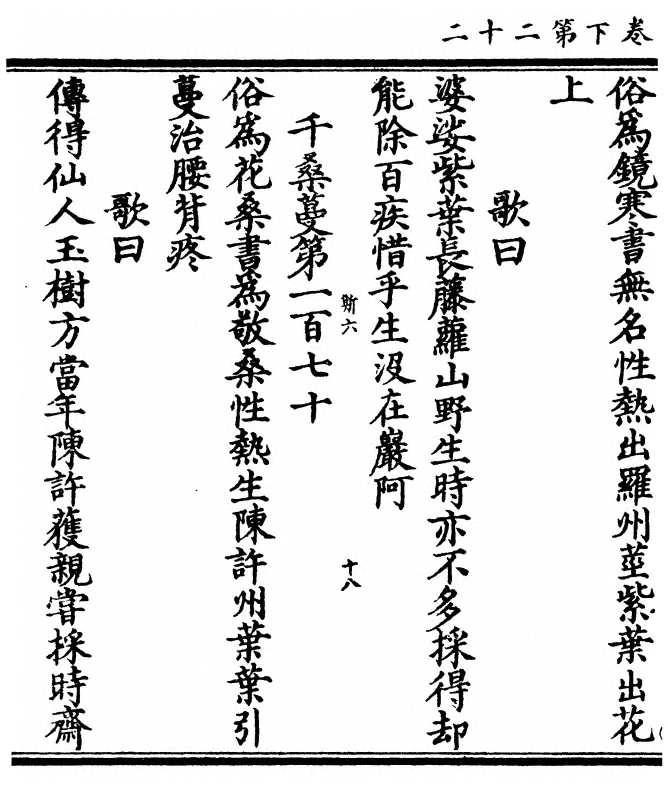 卷下第二十二
俗爲鏡寒書無名性熱出羅州莖紫葉出花
上
歌曰
婆娑紫葉長藤蘿山野生時亦不多採得却
能除百疾惜乎生沒在巖阿
斯六
十八
千桑蔓第一百七十
俗爲花桑書爲敬桑性熱生陳許州葉葉引
蔓治腰背疼
歌曰
傳得仙人玉樹方當年陳許蒦親嘗採時齋